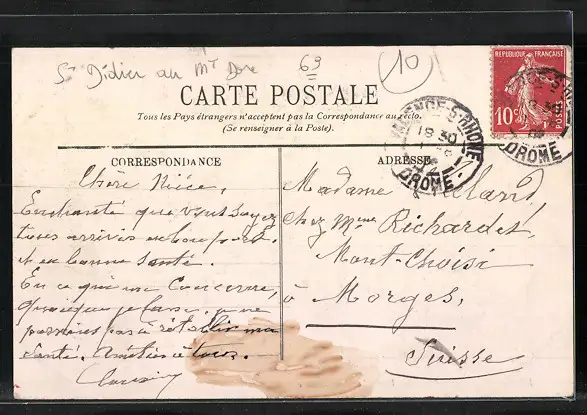 St Didier au Mt Dore
69
10
CARTE POSTALE
Tous les Pays étrangers n'acceptent pas la Correspondance au recto.
(Se renseigner à la Poste).
REPUBLIQUE FRANÇAISE
10c
POSTES
VALENCE-S-RHONE
18 30
DROME
DROME
CORRESPONDANCE
Chère Nièce,
Enchanté que vous soyez
tous arrivés à bon port.
et en bonne santé.
En ce qui me concerne,
quoique je fasse, je ne
parviens pas à rétablir ma
santé. Amitiés à tous.
ADRESSE
Madame
chez Mme Richardet,
Mont-Choisi
à Morges,
Suisse